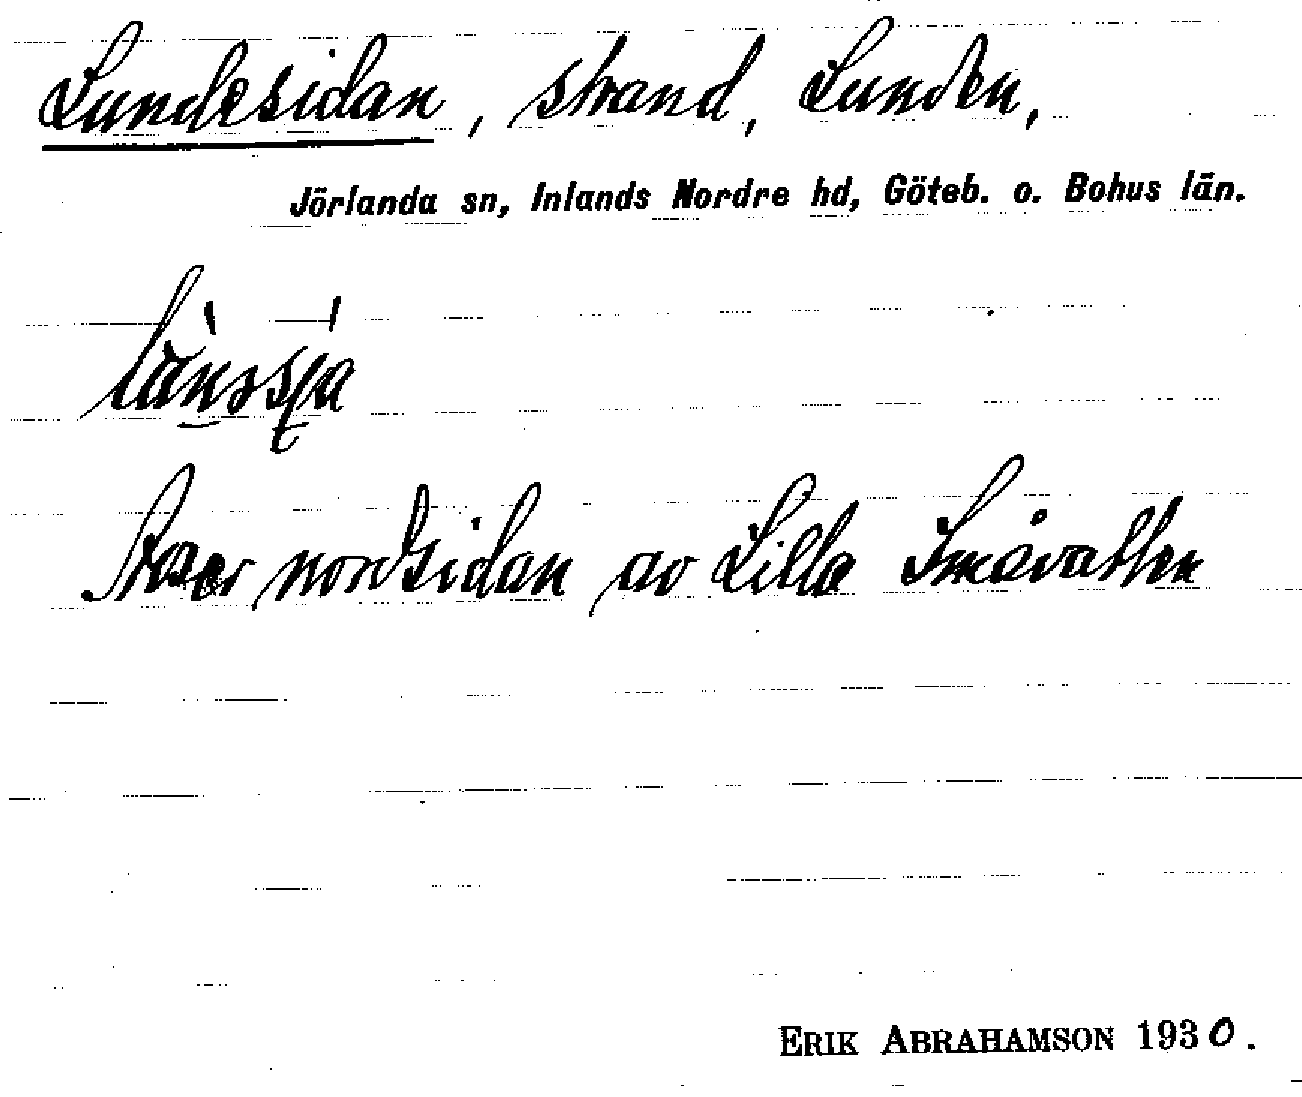 Lundesidan, strand, Lunden,
Jörlanda sn, Inlands Nordre hd, Göteb. o. Bohus län.
nordsidan av Lilla Småvatten
ERIK ABRAHAMSON 1930.